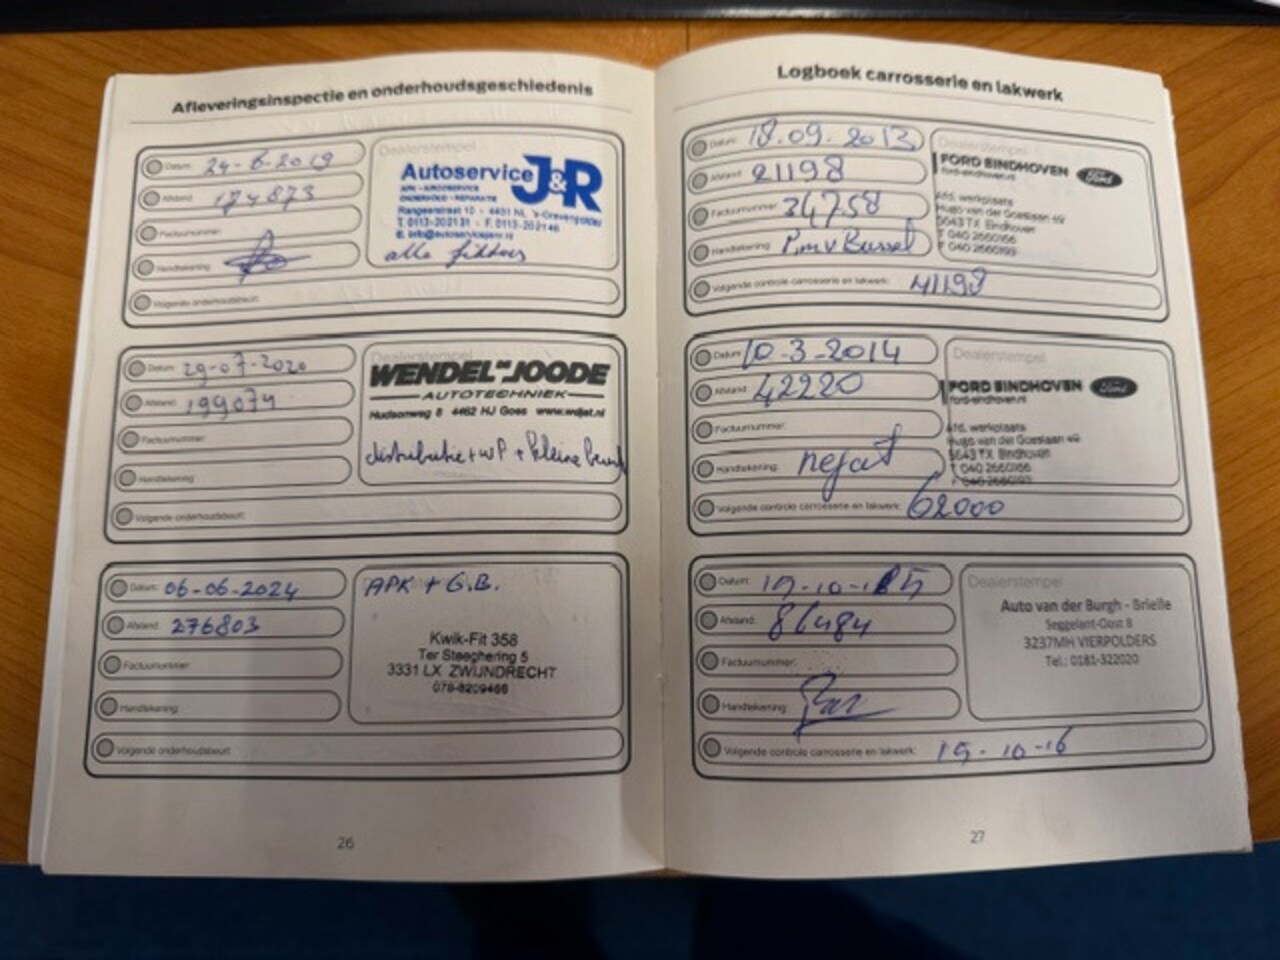 Afleveringsinspectie en onderhoudsgeschiedenis
Datum: 24-6-2019
Afstand: 174873
Factuurnummer:
Handtekening:
Volgende onderhoudsbeurt:
Dealerstempel
Autoservice J&R
APK - AIRCOSERVICE
ONDERHOUD - REPARATIE
4431 NL 's-Gravenpolder
T. 0113-202131 - F. 0113-202146
alle filters
Datum: 29-07-2020
Afstand: 199074
Factuurnummer:
Handtekening:
Volgende onderhoudsbeurt:
Dealerstempel
WENDEL DE JOODE
AUTOTECHNIEK
Hudsonweg 8 4462 HJ Goes www.wdjat.nl
distributie + WP + kleine beurt
Datum: 06-06-2024
Afstand: 276803
Factuurnummer:
Handtekening:
Volgende onderhoudsbeurt:
APK + G.B.
Kwik-Fit 358
Ter Steeghering 5
3331 LX ZWIJNDRECHT
078-6209466
26
Logboek carrosserie en lakwerk
Datum: 18.09.2013
Afstand: 21198
Factuurnummer: 34758
Handtekening: P.m v Bussel
Volgende controle carrosserie en lakwerk: 41198
Dealerstempel
FORD EINDHOVEN Ford
ford-eindhoven.nl
Afd. werkplaats
Hugo van der Goeslaan 49
5643 TX Eindhoven
T 040 2660166
F 040 2660193
Datum: 10-3-2014
Afstand: 42220
Factuurnummer:
Handtekening: nejat
Volgende controle carrosserie en lakwerk: 62000
Dealerstempel
FORD EINDHOVEN Ford
ford-eindhoven.nl
Afd. werkplaats
Hugo van der Goeslaan 49
5643 TX Eindhoven
T 040 2660166
F 040 2660193
Datum:
Afstand: 86484
Factuurnummer:
Handtekening:
Volgende controle carrosserie en lakwerk: 15-10-16
Dealerstempel
Auto van der Burgh - Brielle
Seggelant-Oost 8
3237MH VIERPOLDERS
Tel.: 0181-322020
27